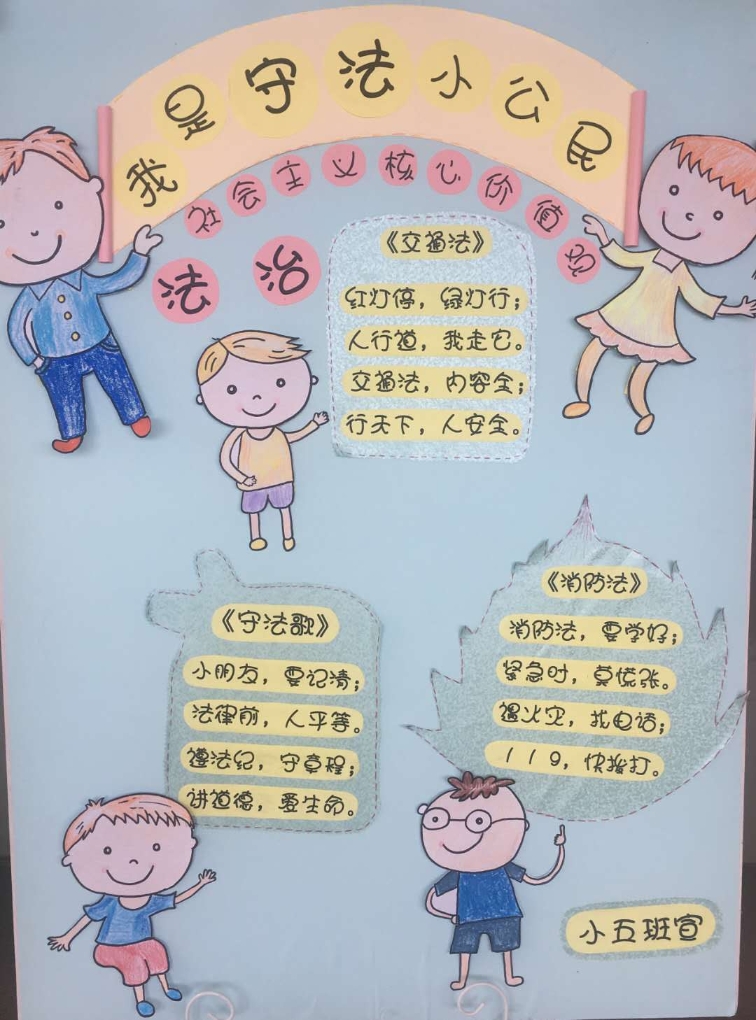 我是守法小公民
社会主义核心价值观
法治
《交通法》
红灯停，绿灯行；
人行道，我走它。
交通法，内容全；
行天下，人安全。
《守法歌》
小朋友，要记清；
法律前，人平等。
遵法纪，守章程；
讲道德，爱生命。
《消防法》
消防法，要学好；
紧急时，莫慌张。
遇火灾，找电话；
119，快拨打。
小五班宣